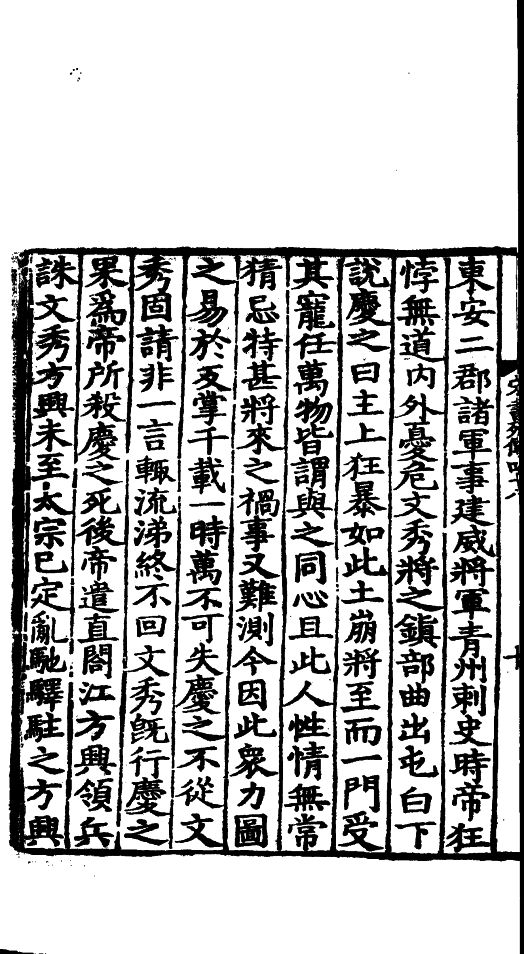 東安二郡諸軍事建威將軍青州刺史時帝狂
悖無道内外憂危文秀將之鎮部曲出屯白下
說慶之曰主上狂暴如此土崩將至而一門受
其寵任萬物皆謂與之同心且此人性情無常
猜忌特甚將來之禍事又難測今因此衆力圖
之易於反掌千載一時萬不可失慶之不從文
秀固請非一言輒流涕終不回文秀旣行慶之
果爲帝所殺慶之死後帝遣直閤江方興領兵
誅文秀方興未至太宗已定亂馳驛駐之方興